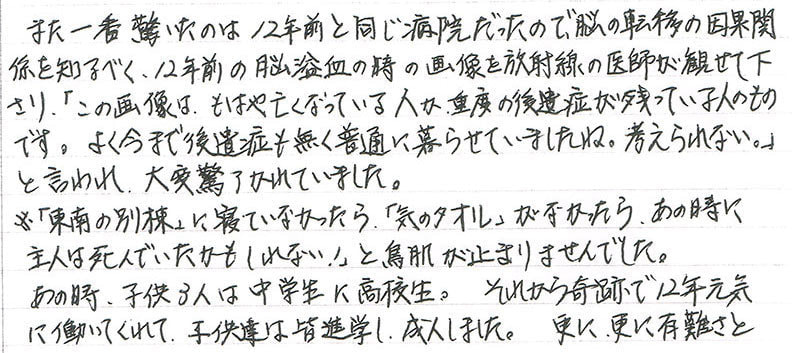 また一番驚いたのは12年前と同じ病院だったので脳の転移の因果関
係を知るべく、12年前の脳溢血の時の画像を放射線の医師が観せて下
さり、「この画像は、もはや亡くなっている人か、重度の後遺症が残っている人のもの
です。よく今まで後遺症も無く普通に暮らせていましたね。考えられない。」
と言われ、大変驚かれていました。
※「東南の別棟」に寝ていなかったら、「気のタオル」がなかったら、あの時に
主人は死んでいたかもしれない!」と鳥肌が止まりませんでした。
あの時、子供3人は中学生に高校生。それから奇跡で12年元気
に働いてくれて、子供達は皆進学し、成人しました。更に、更に有難さと